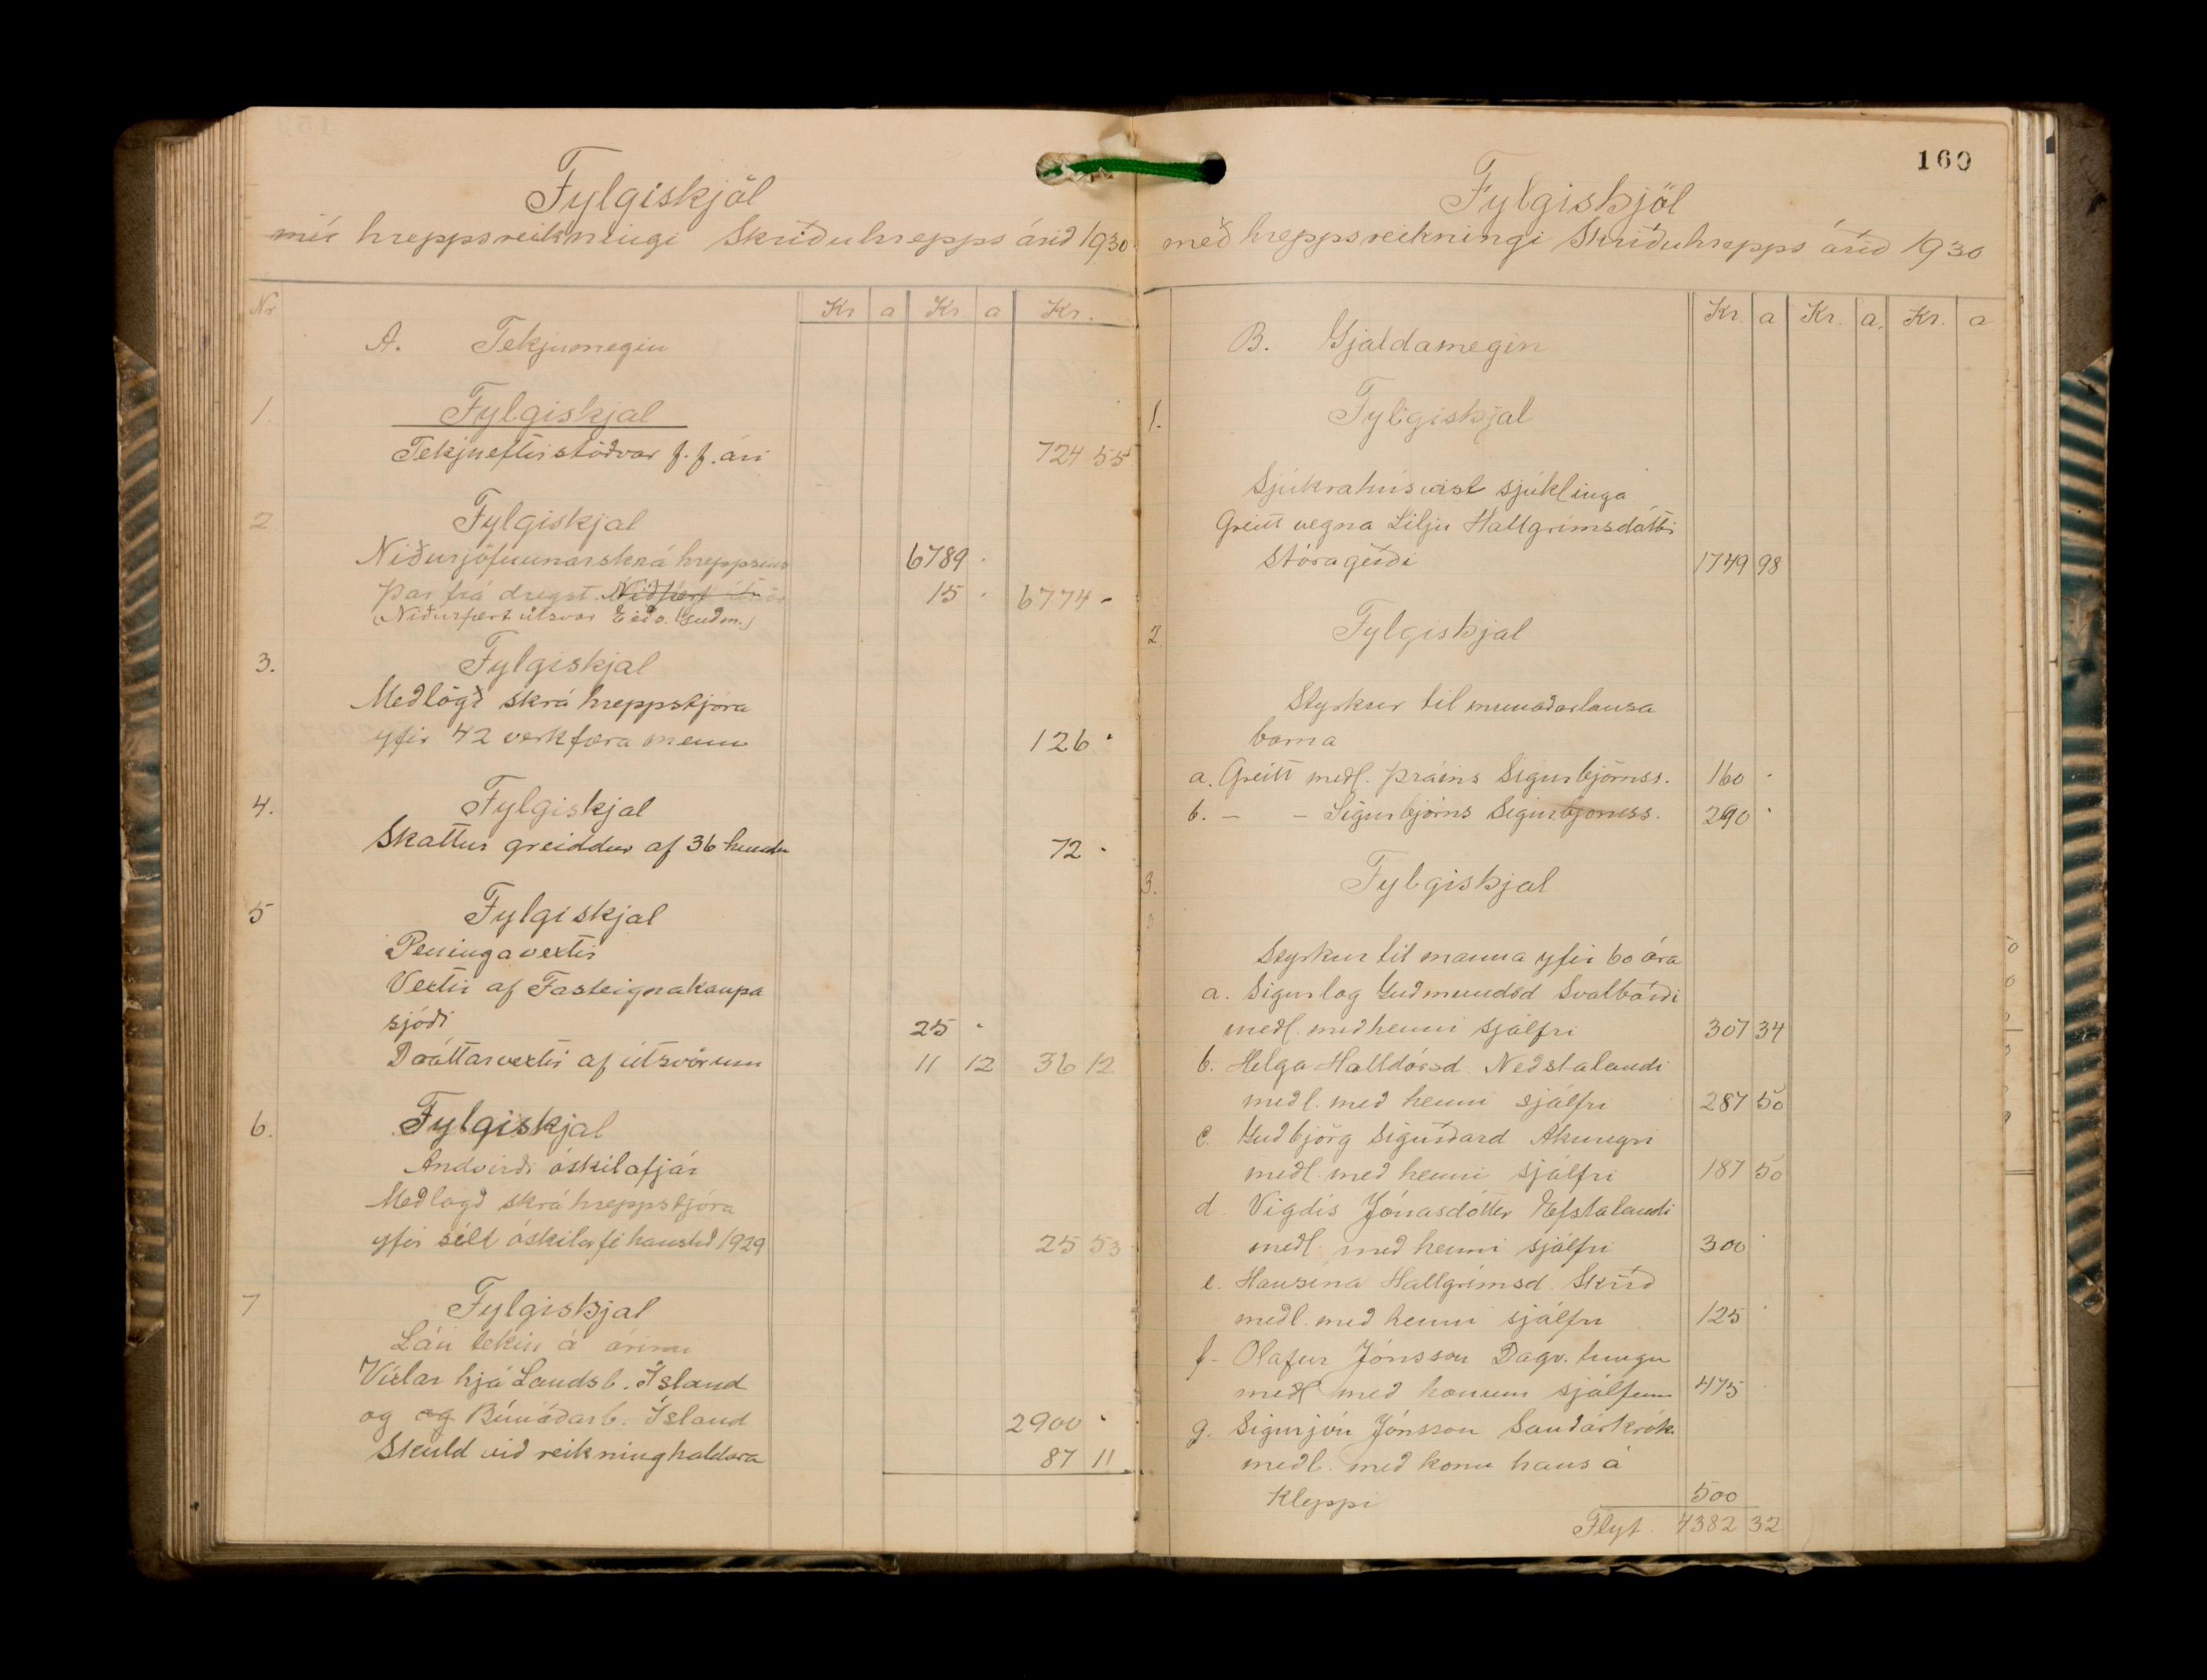 Fylgiskjöl
með hreppsreikningi Skriðuhrepps árið 1930
Nr. Kr a Kr a Kr.
A. Tekjumegin
1. Fylgiskjal
Tekjueftirstöðvar f. f. ári 724 55
2 Fylgiskjal
Niðurjöfnunarskrá hreppsins 6789 -
Þar frá dregst Niðfært útsvör 15 - 6774 -
(Niðurfært útsvar Guðm.)
3. Fylgiskjal
Meðlögð skrá hreppstjóra
yfir 42 verkfæra menn 126 -
4. Fylgiskjal
Skattur greiddur af 36 hundu 72 -
5 Fylgiskjal
Peningavextir
Vextir af Fasteignakaupa
sjóði 25 -
Dráttarvextir af útsvörum 11 12 36 12
6. Fylgiskjal
Andvirði óskilafjár
Meðlagð skrá hreppstjóra
yfir selt óskilafé haustið 1929 25 53
7 Fylgiskjal
Lán tekin á árinu
Víxlar hjá Landsb. Ísland
og og Búnaðarb. Ísland 2900 -
Skuld við reikninghaldara 87 11
160
Fylgiskjöl
með hreppsreikningi Skriðuhrepps árið 1930
Kr. a Kr. a. Kr. a
B. Gjaldamegin
1. Fylgiskjal
Sjúkrahúsvist sjúklinga
Greitt vegna Lilju Hallgrímsdóttir
Stóragerði 1749 98
2 Fylgiskjal
Styrkur til munaðarlausa
barna
a. Greitt meðl. Þráins Sigurbjörnss. 160 -
b. - - Sigurbjörns Sigurbjörnss. 290 -
3. Fylgiskjal
Styrkur til manna yfir 60 ára
a. Sigurlög Guðmundsd Svalbarði
meðl. með henni sjálfri 307 34
b. Helga Halldórsd. Neðstalandi
meðl. með henni sjálfri 287 50
c. Guðbjörg Sigurðard Akureyri
meðl. með henni sjálfri 187 50
d. Vigdís Jónasdóttir Efstalandi
meðl. með henni sjálfri 300 -
e. Hansína Hallgrímsd. Skrið
meðl. með henni sjálfri 125 -
f - Olafur Jónsson Dagv. tungu
meðl með honum sjálfum 475 -
g. Sigurjón Jónsson Sauðárkrók.
meðl. með konu hans á
Kleppi 500
Flyt. 4382 32